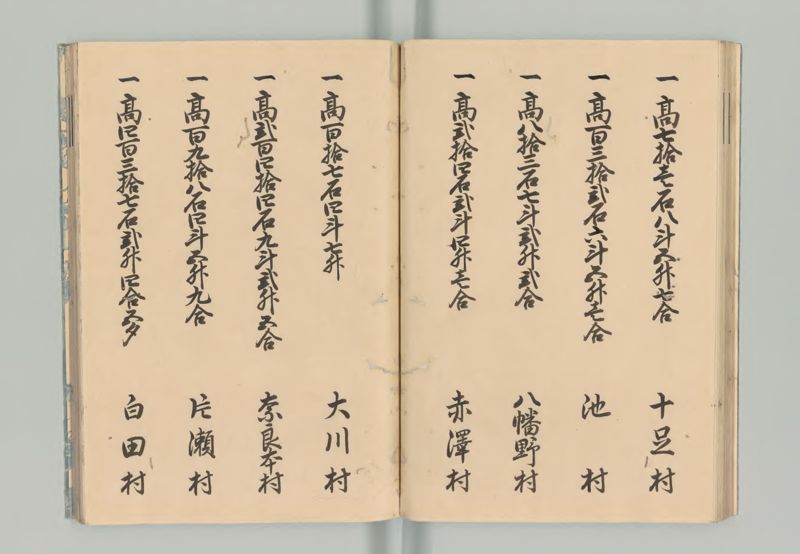 一 高七拾壱石八斗五升七合 十足村
一 高百三拾弐石六斗五升壱合 池村
一 高八拾三石七斗弐升弐合 八幡野村
一 高弐拾四石弐斗四升壱合 赤澤村
一 高百拾七石四斗七升 大川村
一 高弐百四拾四石九斗弐升五合 奈良本村
一 高百九拾八石四斗五升九合 片瀬村
一 高四百三拾七石弐升四合五夕 白田村